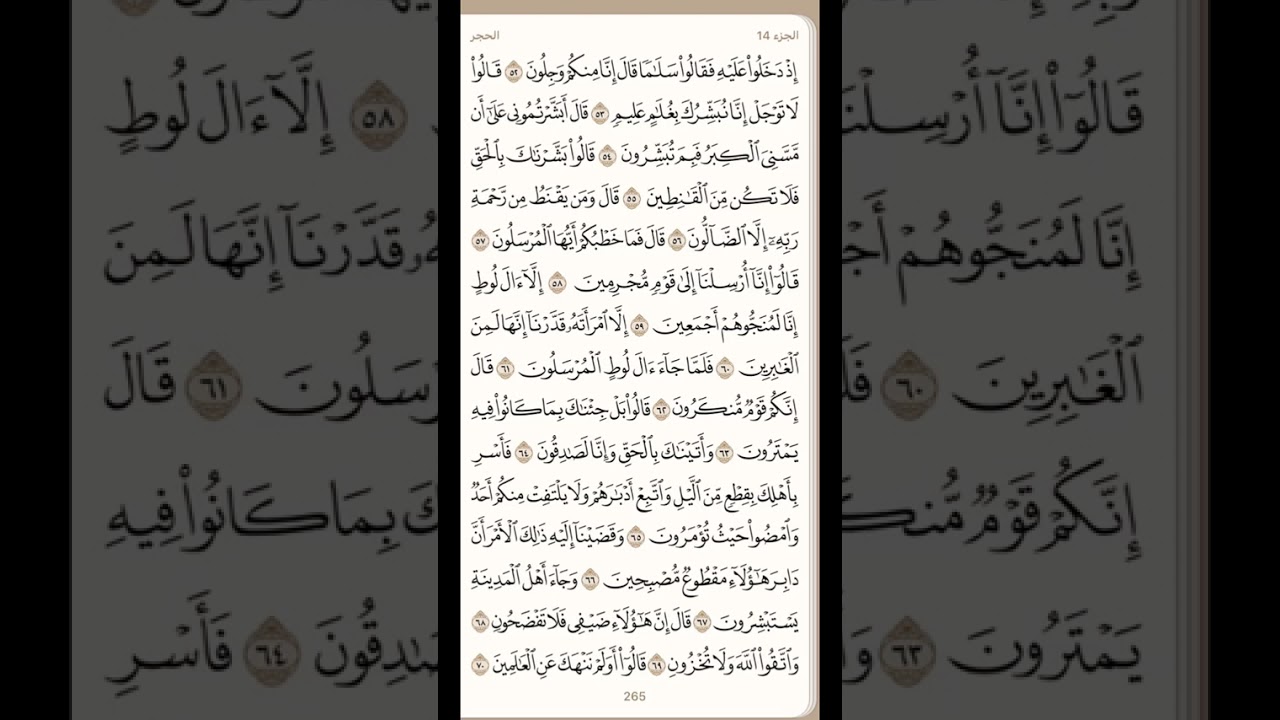 الجزء 14
الحجر
إِذْ دَخَلُوا۟ عَلَيْهِ فَقَالُوا۟ سَلَـٰمًا قَالَ إِنَّا مِنكُمْ وَجِلُونَ ٥٢ قَالُوا۟
لَا تَوْجَلْ إِنَّا نُبَشِّرُكَ بِغُلَـٰمٍ عَلِيمٍ ٥٣ قَالَ أَبَشَّرْتُمُونِى عَلَىٰٓ أَن
مَّسَّنِىَ ٱلْكِبَرُ فَبِمَ تُبَشِّرُونَ ٥٤ قَالُوا۟ بَشَّرْنَـٰكَ بِٱلْحَقِّ
فَلَا تَكُن مِّنَ ٱلْقَـٰنِطِينَ ٥٥ قَالَ وَمَن يَقْنَطُ مِن رَّحْمَةِ
رَبِّهِۦٓ إِلَّا ٱلضَّآلُّونَ ٥٦ قَالَ فَمَا خَطْبُكُمْ أَيُّهَا ٱلْمُرْسَلُونَ ٥٧
قَالُوٓا۟ إِنَّآ أُرْسِلْنَآ إِلَىٰ قَوْمٍ مُّجْرِمِينَ ٥٨ إِلَّآ ءَالَ لُوطٍ
إِنَّا لَمُنَجُّوهُمْ أَجْمَعِينَ ٥٩ إِلَّا ٱمْرَأَتَهُۥ قَدَّرْنَآ إِنَّهَا لَمِنَ
ٱلْغَـٰبِرِينَ ٦٠ فَلَمَّا جَآءَ ءَالَ لُوطٍ ٱلْمُرْسَلُونَ ٦١ قَالَ
إِنَّكُمْ قَوْمٌ مُّنكَرُونَ ٦٢ قَالُوا۟ بَلْ جِئْنَـٰكَ بِمَا كَانُوا۟ فِيهِ
يَمْتَرُونَ ٦٣ وَأَتَيْنَـٰكَ بِٱلْحَقِّ وَإِنَّا لَصَـٰدِقُونَ ٦٤ فَأَسْرِ
بِأَهْلِكَ بِقِطْعٍ مِّنَ ٱلَّيْلِ وَٱتَّبِعْ أَدْبَـٰرَهُمْ وَلَا يَلْتَفِتْ مِنكُمْ أَحَدٌ
وَٱمْضُوا۟ حَيْثُ تُؤْمَرُونَ ٦٥ وَقَضَيْنَآ إِلَيْهِ ذَٰلِكَ ٱلْأَمْرَ أَنَّ
دَابِرَ هَـٰٓؤُلَآءِ مَقْطُوعٌ مُّصْبِحِينَ ٦٦ وَجَآءَ أَهْلُ ٱلْمَدِينَةِ
يَسْتَبْشِرُونَ ٦٧ قَالَ إِنَّ هَـٰٓؤُلَآءِ ضَيْفِى فَلَا تَفْضَحُونِ ٦٨
وَٱتَّقُوا۟ ٱللَّهَ وَلَا تُخْزُونِ ٦٩ قَالُوٓا۟ أَوَلَمْ نَنْهَكَ عَنِ ٱلْعَـٰلَمِينَ ٧٠
265